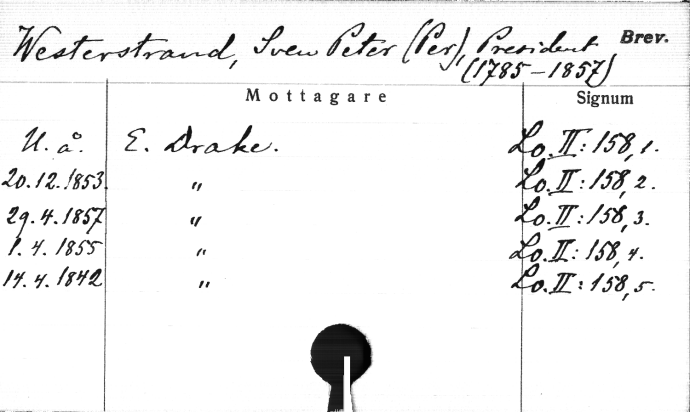 Westerstrand, Sven Peter (Per), President Brev.
(1785-1857)
Mottagare Signum
U. å. E. Drake. Lo. II: 158, 1.
20.12.1853 " Lo. II: 158, 2.
29.4.1857 " Lo. II: 158, 3.
1.4.1855 " Lo. II: 158, 4.
14.4.1842 " Lo. II: 158, 5.